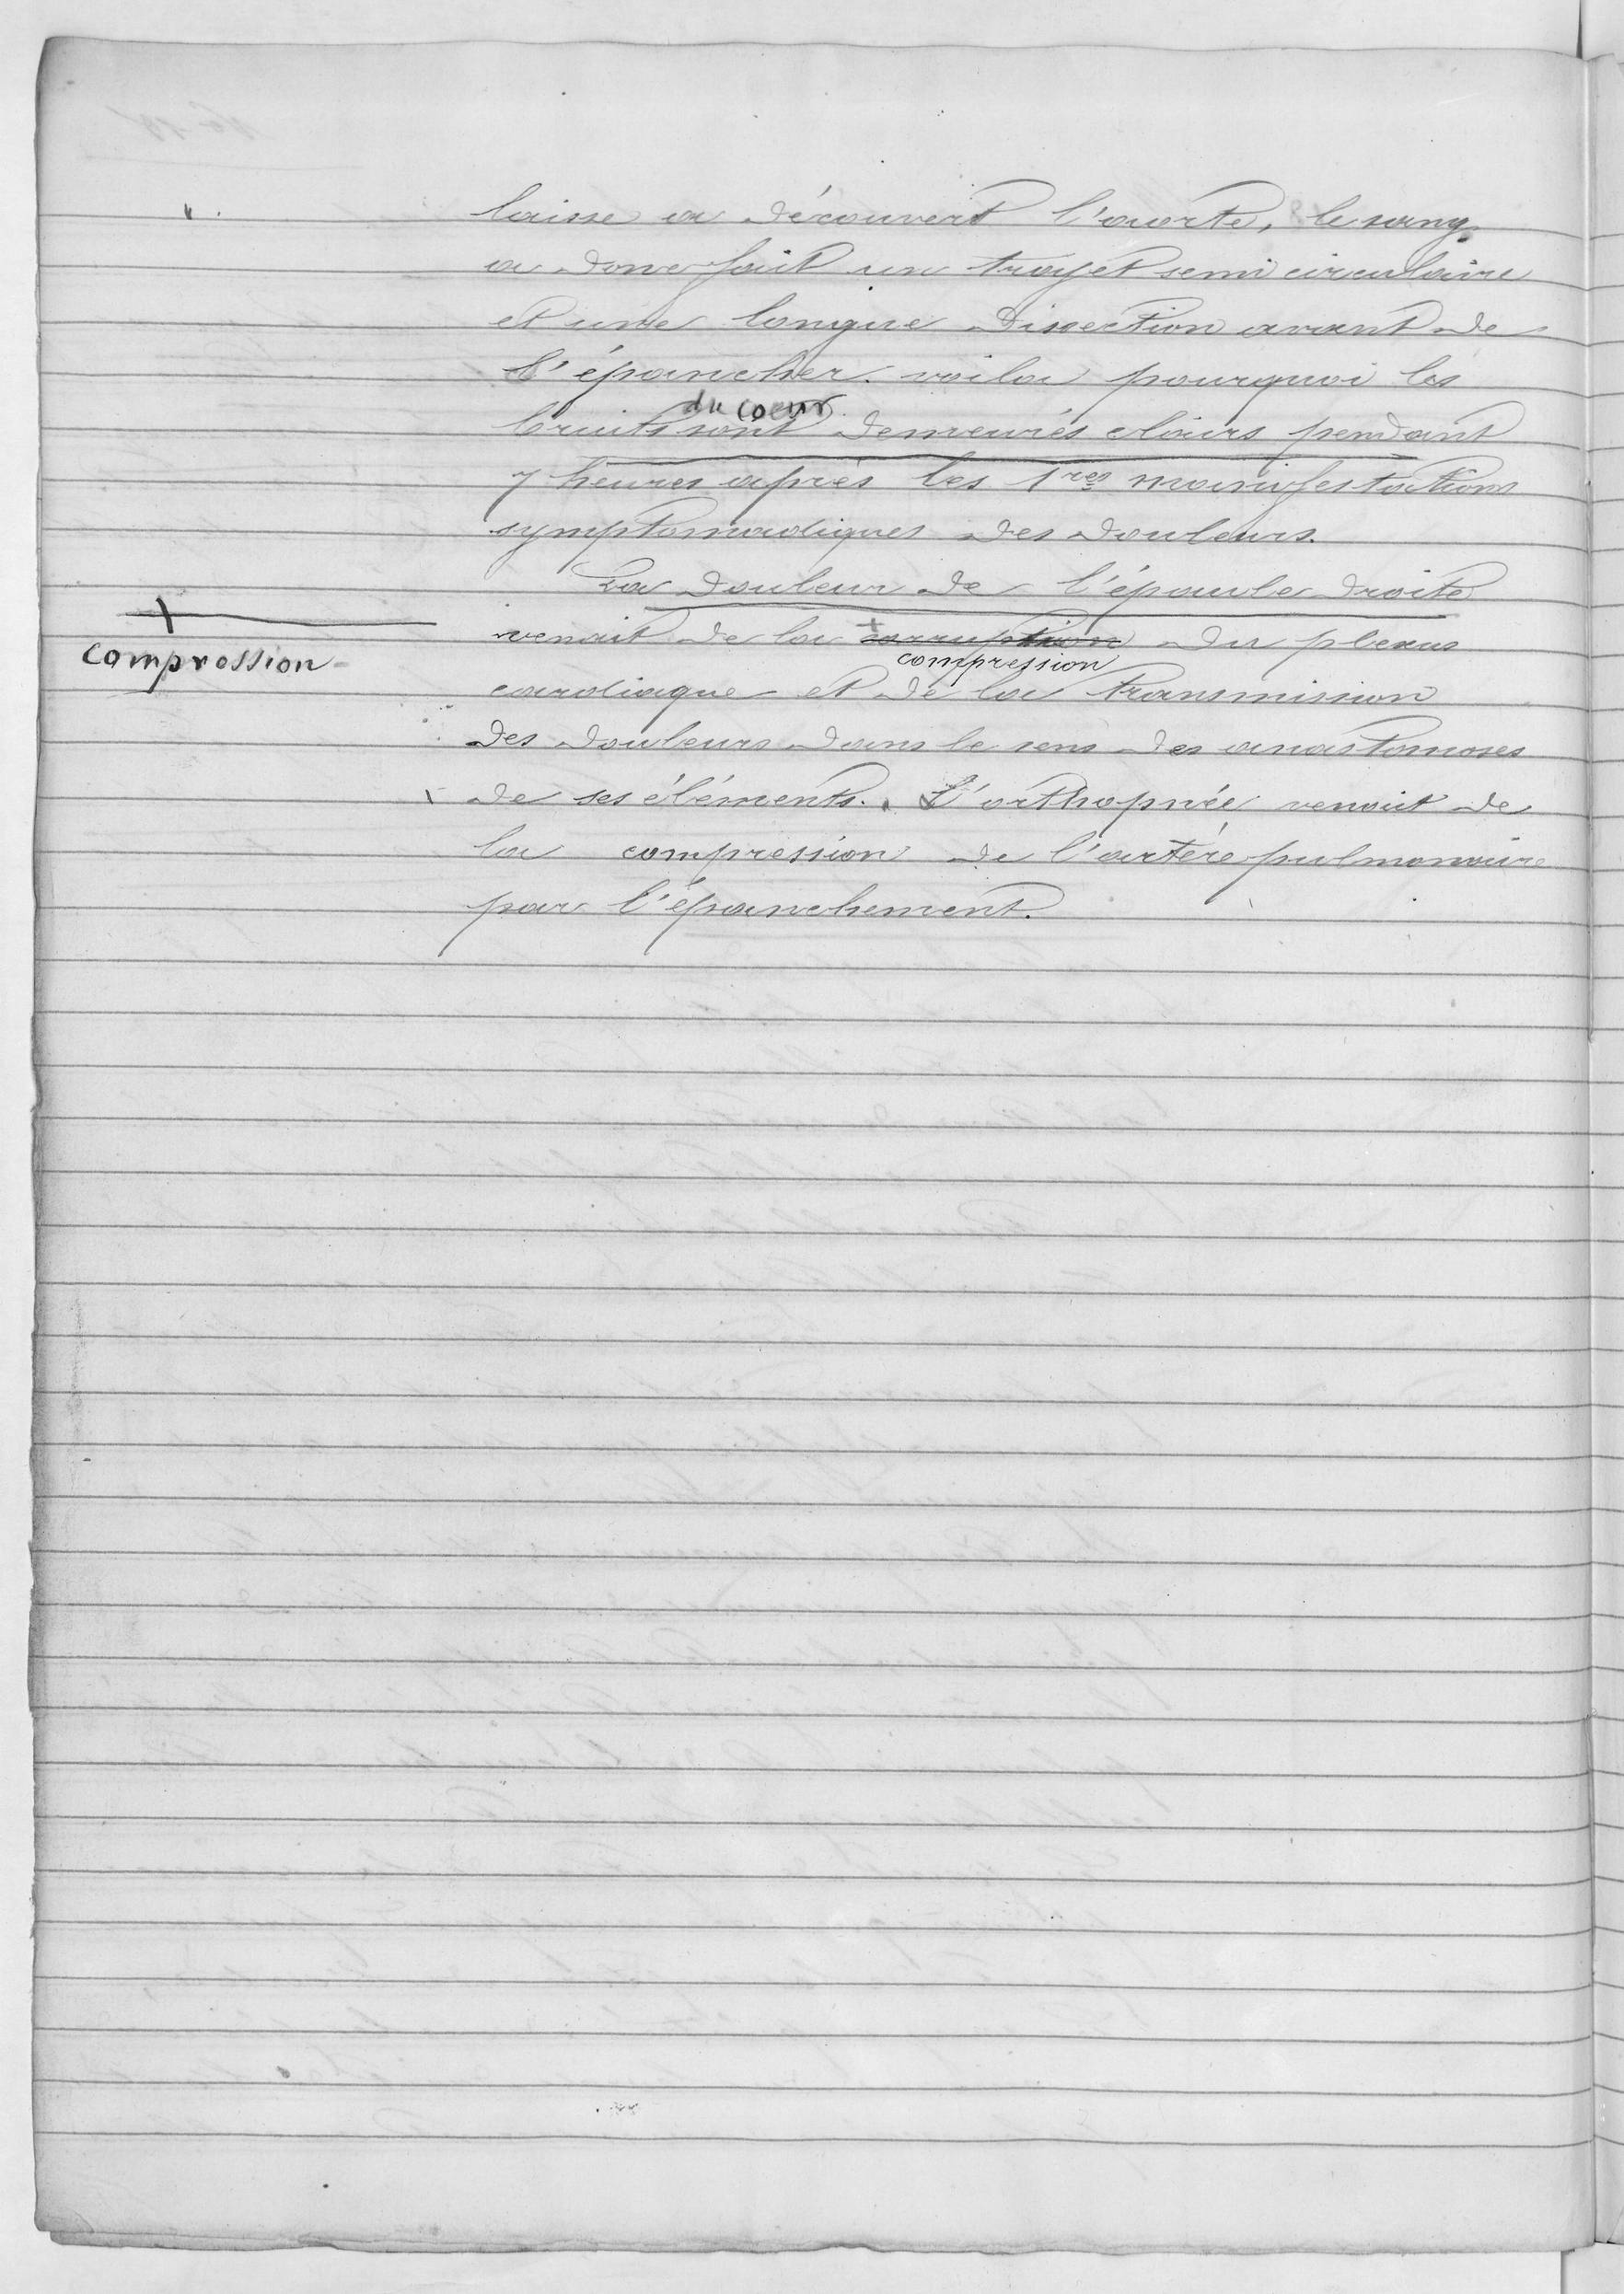 laisse a découvert l'aorte, le sang
a donc fait un trajet semi circulaire
et une longue dissection avant de
l'épancher. voila pourquoi les
du coeur
bruits sont demeurés clairs pendant
7 heures après les 1res manifestations
symptomadiques des douleurs.
La douleur de l'épaule droite
+
venait de la + corruption du plexus
compression
compression
cardiaque et de la transmission
des douleurs dans le sens des anastomoses
de ses éléments. L'orthopnée venait de
la compression de l'artère pulmonaire
par l'épanchement.